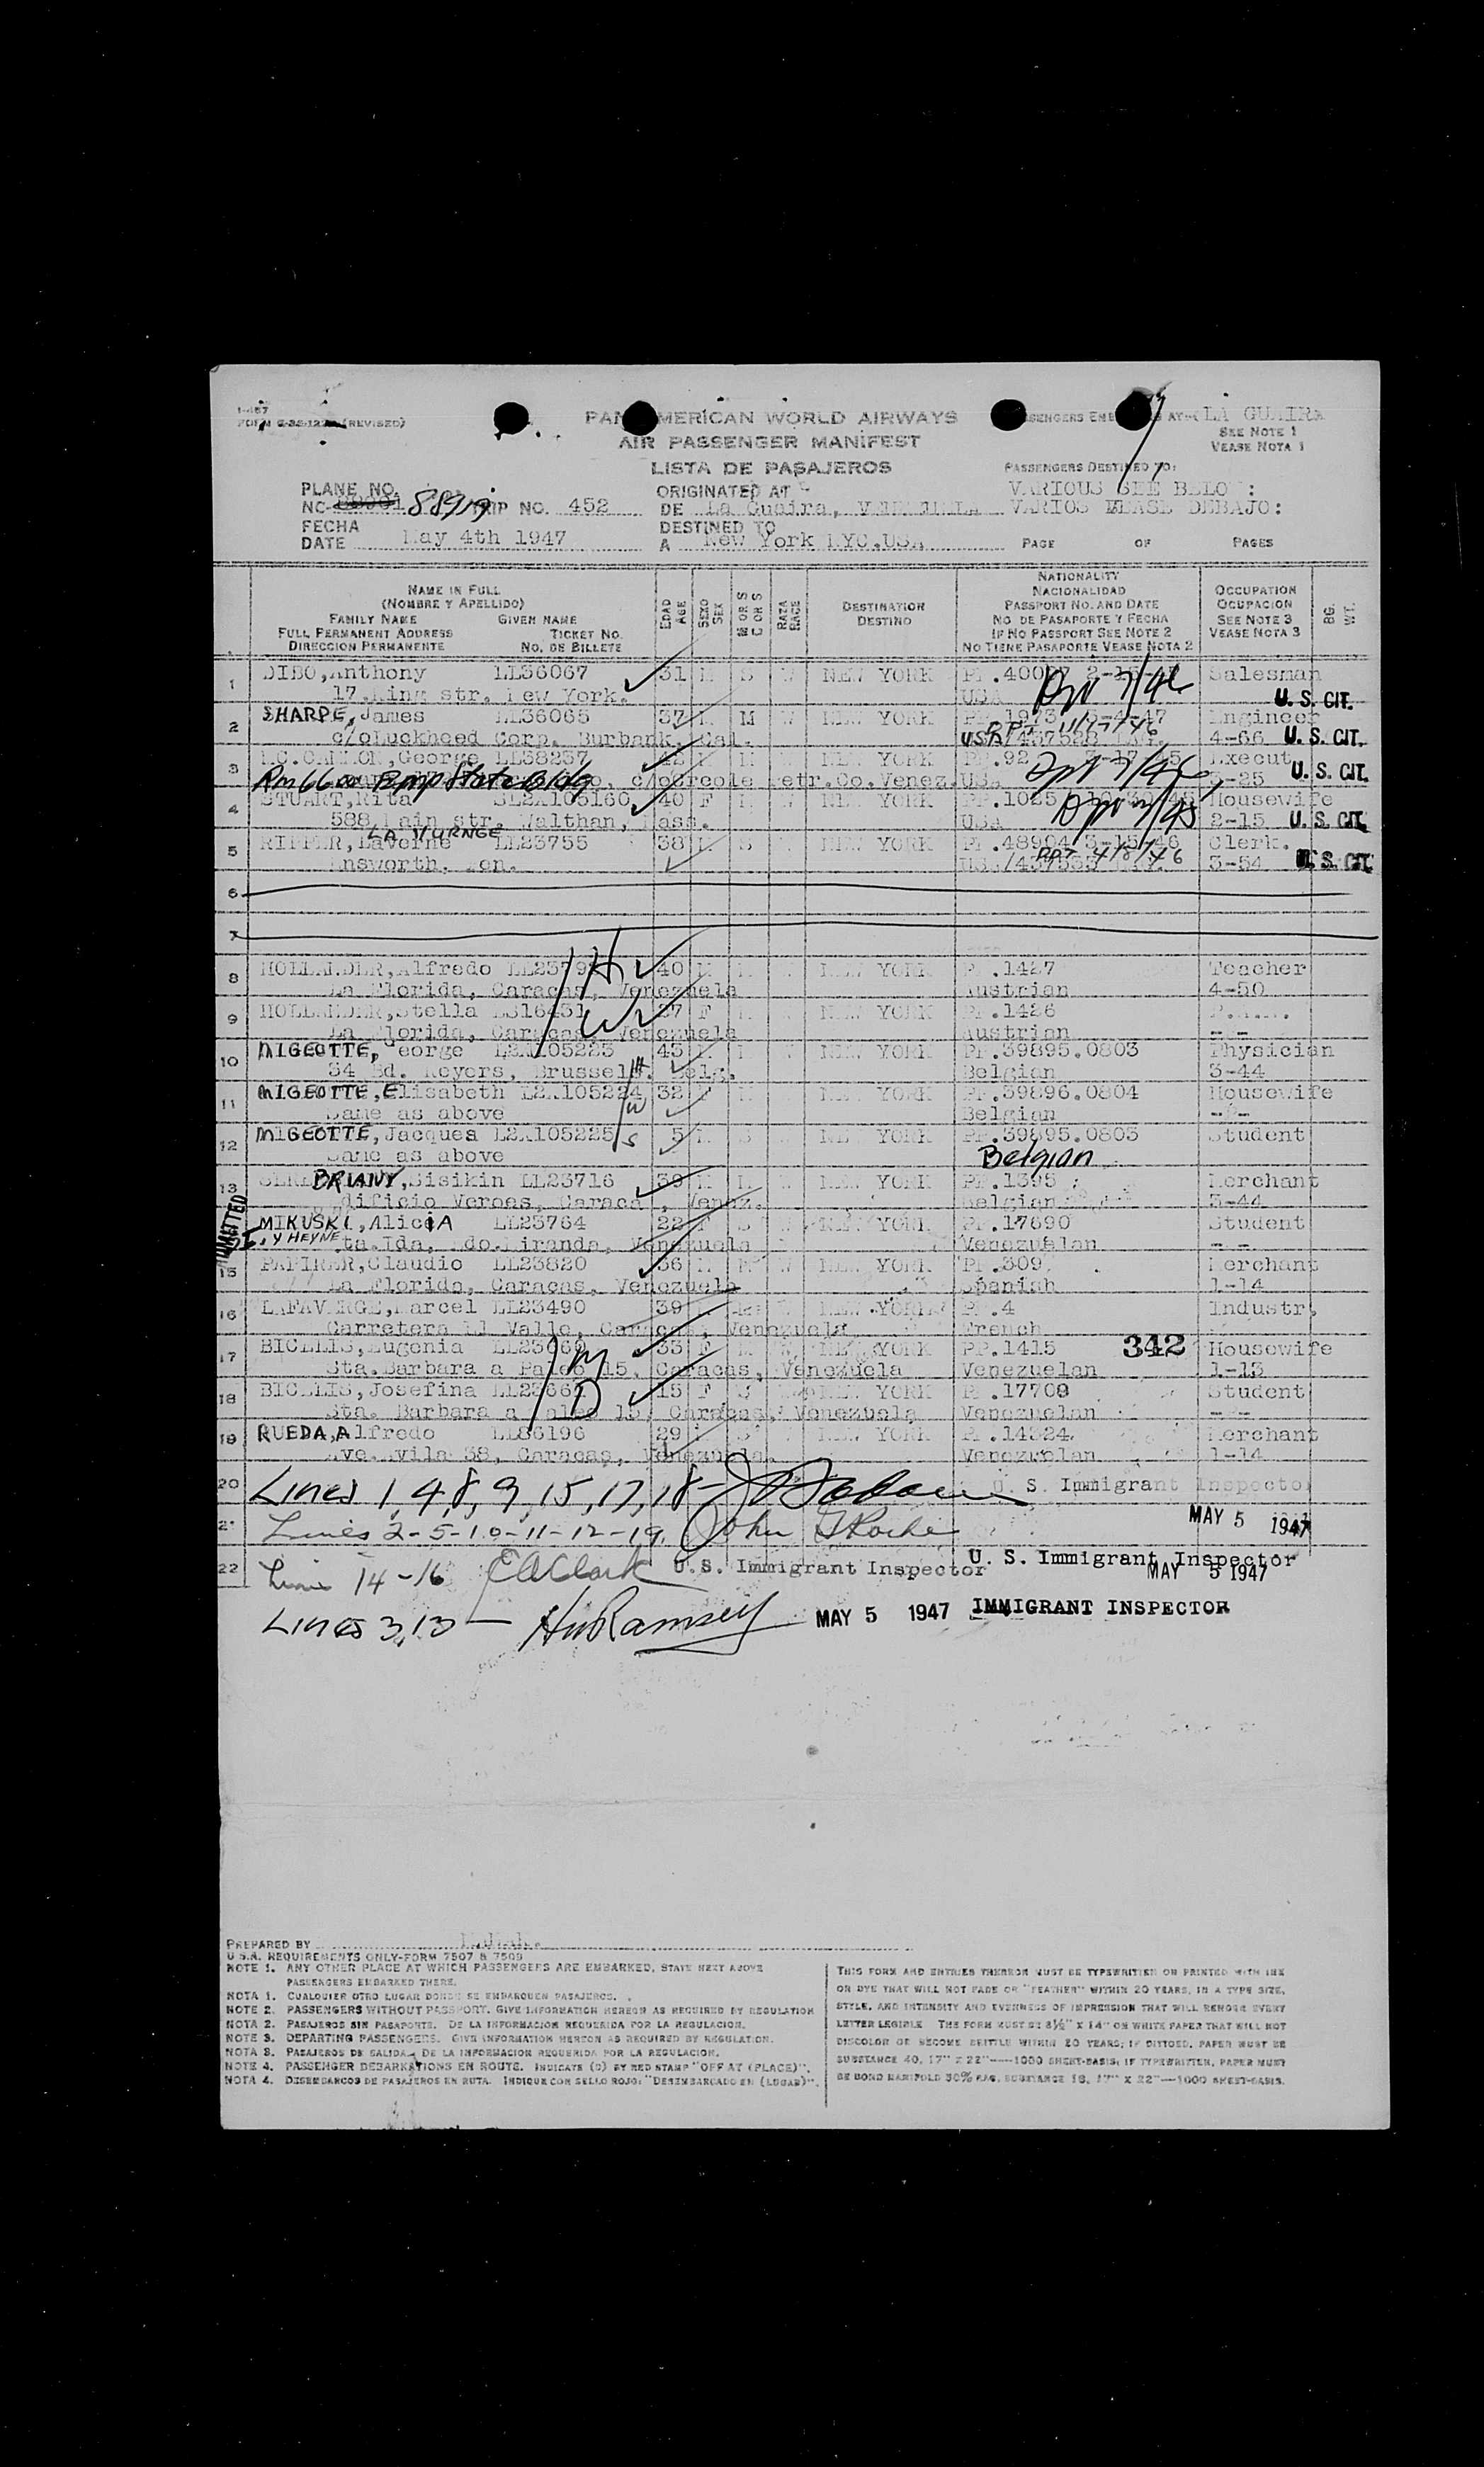 I-467
FORM (REVISED)
PAN AMERICAN WORLD AIRWAYS
AIR PASSENGER MANIFEST
LISTA DE PASAJEROS
PASSENGERS EMB AT LA GUAIRA
SEE NOTE 1
VEASE NOTA 1
PASSENGERS DESTINED TO:
VARIOUS SEE BELO :
VARIOS VEASE DEBAJO:
PLANE NO.
NC- TRIP NO. 452
FECHA
DATE May 4th 1947
ORIGINATED AT
DE La Guaira, VENEZUELA
DESTINED TO
A New York NYC.USA
PAGE OF PAGES
NAME IN FULL
(NOMBRE Y APELLIDO)
FAMILY NAME GIVEN NAME
FULL PERMANENT ADDRESS TICKET NO.
DIRECCION PERMANENTE NO. DE BILLETE
EDAD AGE
SEXO SEX
M OR S C OR S
RAZA RACE
DESTINATION
DESTINO
NATIONALITY
NACIONALIDAD
PASSPORT NO. AND DATE
NO DE PASAPORTE Y FECHA
IF NO PASSPORT SEE NOTE 2
NO TIENE PASAPORTE VEASE NOTA 2
OCCUPATION
OCUPACION
SEE NOTE 3
VEASE NOTA 3
BG. WT.
1 DIBO, Anthony LL36067 31 M S W NEW YORK Salesman
17 King str. New York. USA U. S. CIT.
2 SHARPE, James LL36065 37 M M W NEW YORK Engineer
c/o Luckheed Corp. Burbank, Cal. USA 4-66 U. S. CIT.
3 George LL38257 42 M M W NEW YORK PP.92 Execut
Rm 6600 Emp State Bldg Petr.Co.Venez. USA U. S. CIT.
4 STUART, Rita 40 F M W NEW YORK Housewife
588 Main str. Walthan, Mass. USA 2-15 U. S. CIT.
5 Laverne LL23755 38 M S W NEW YORK PP.48904 3-15-46 Clerk.
Ainsworth. PPT 4/8/46 3-54 U. S. CIT.
6
7
8 HOLLANDER, Alfredo H 40 M M W NEW YORK PP.1427 Teacher
La Florida, Caracas, Venezuela Austrian 4-50
9 HOLLANDER, Stella LL16431 W 37 F M W NEW YORK PP.1426
La Florida, Caracas, Venezuela Austrian
10 MIGEOTTE, George 43 M M W NEW YORK PP.39895.0803 Physician
34 Bd. Reyers, Brussels. Belg. H Belgian 3-44
11 MIGEOTTE, Elisabeth 32 F M W NEW YORK PP.39896.0804 Housewife
Same as above W Belgian
12 MIGEOTTE, Jacquea 5 M S W NEW YORK PP.39895.0803 Student
Same as above S Belgian
13 BRIANY, Sisikin LL23716 39 M M W NEW YORK PP.1395 Merchant
Edificio Veroes, Caraca , Venez. Belgian 3-44
ADMITTED
MIKUSKI, Alicia LL23764 22 F S W NEW YORK PP.17690 Student
Y HEYNE Sta.Ida, Edo.Miranda, Venezuela Venezuelan
15 PAPIRER, Claudio LL23820 36 M M W NEW YORK PP.309 Merchant
La Florida, Caracas, Venezuela Spanish 1-14
16 Marcel LL23490 39 M W NEW YORK PP.4 Industr.
Carretera El Valle, Caracas, Venezuela French
17 BICELIS, Eugenia M 35 F M W NEW YORK PP.1415 342 Housewife
Sta.Barbara a 15, Caracas, Venezuela Venezuelan 1-13
18 BICELIS, Josefina D 15 F S W NEW YORK PP.17708 Student
Sta. Barbara a 15, Caracas, Venezuela Venezuelan
19 RUEDA, Alfredo LL36196 29 M S W NEW YORK PP.14324 Merchant
Ave. Avila 38, Caracas, Venezuela. Venezuelan 1-14
20 Lines 1, 4, 8, 9, 15, 17, 18 - U. S. Immigrant Inspector
21 Lines 2-5-10-11-12-19. John G Roche MAY 5 1947
U. S. Immigrant Inspector
22 Lines 14-16 E A Clark U.S. Immigrant Inspector MAY 5 1947
Lines 3, 13 - Ramsey MAY 5 1947 IMMIGRANT INSPECTOR
PREPARED BY
U.S.A. REQUIREMENTS ONLY-FORM 7507 & 7509
NOTE 1. ANY OTHER PLACE AT WHICH PASSENGERS ARE EMBARKED, STATE NEXT ABOVE
PASSENGERS EMBARKED THERE.
NOTA 1. CUALQUIER OTRO LUGAR DONDE SE EMBARQUEN PASAJEROS.
NOTE 2. PASSENGERS WITHOUT PASSPORT. GIVE INFORMATION HEREON AS REQUIRED BY REGULATION
NOTA 2. PASAJEROS SIN PASAPORTE. DE LA INFORMACION REQUERIDA POR LA REGULACION.
NOTE 3. DEPARTING PASSENGERS. GIVE INFORMATION HEREON AS REQUIRED BY REGULATION.
NOTA 3. PASAJEROS DE SALIDA. DE LA INFORMACION REQUERIDA POR LA REGULACION.
NOTE 4. PASSENGER DEBARKATIONS EN ROUTE. INDICATE (O) BY RED STAMP "OFF AT (PLACE)".
NOTA 4. DESEMBARCOS DE PASAJEROS EN RUTA. INDIQUE CON SELLO ROJO: "DESEMBARCADO EN (LUGAR)".
THIS FORM AND ENTRIES THEREON MUST BE TYPEWRITTEN OR PRINTED WITH INK
OR DYE THAT WILL NOT FADE OR "FEATHER" WITHIN 20 YEARS, IN A TYPE SIZE,
STYLE, AND INTENSITY AND EVENNESS OF IMPRESSION THAT WILL RENDER EVERY
LETTER LEGIBLE THE FORM MUST BE 8½" X 14" ON WHITE PAPER THAT WILL NOT
DISCOLOR OR BECOME BRITTLE WITHIN 20 YEARS; IF DITTOED, PAPER MUST BE
SUBSTANCE 40, 17" X 22"—1000 SHEET-BASIS; IF TYPEWRITTEN, PAPER MUST
BE BOND MANIFOLD 50% RAG, SUBSTANCE 18, 17" X 22"—1000 SHEET-BASIS.